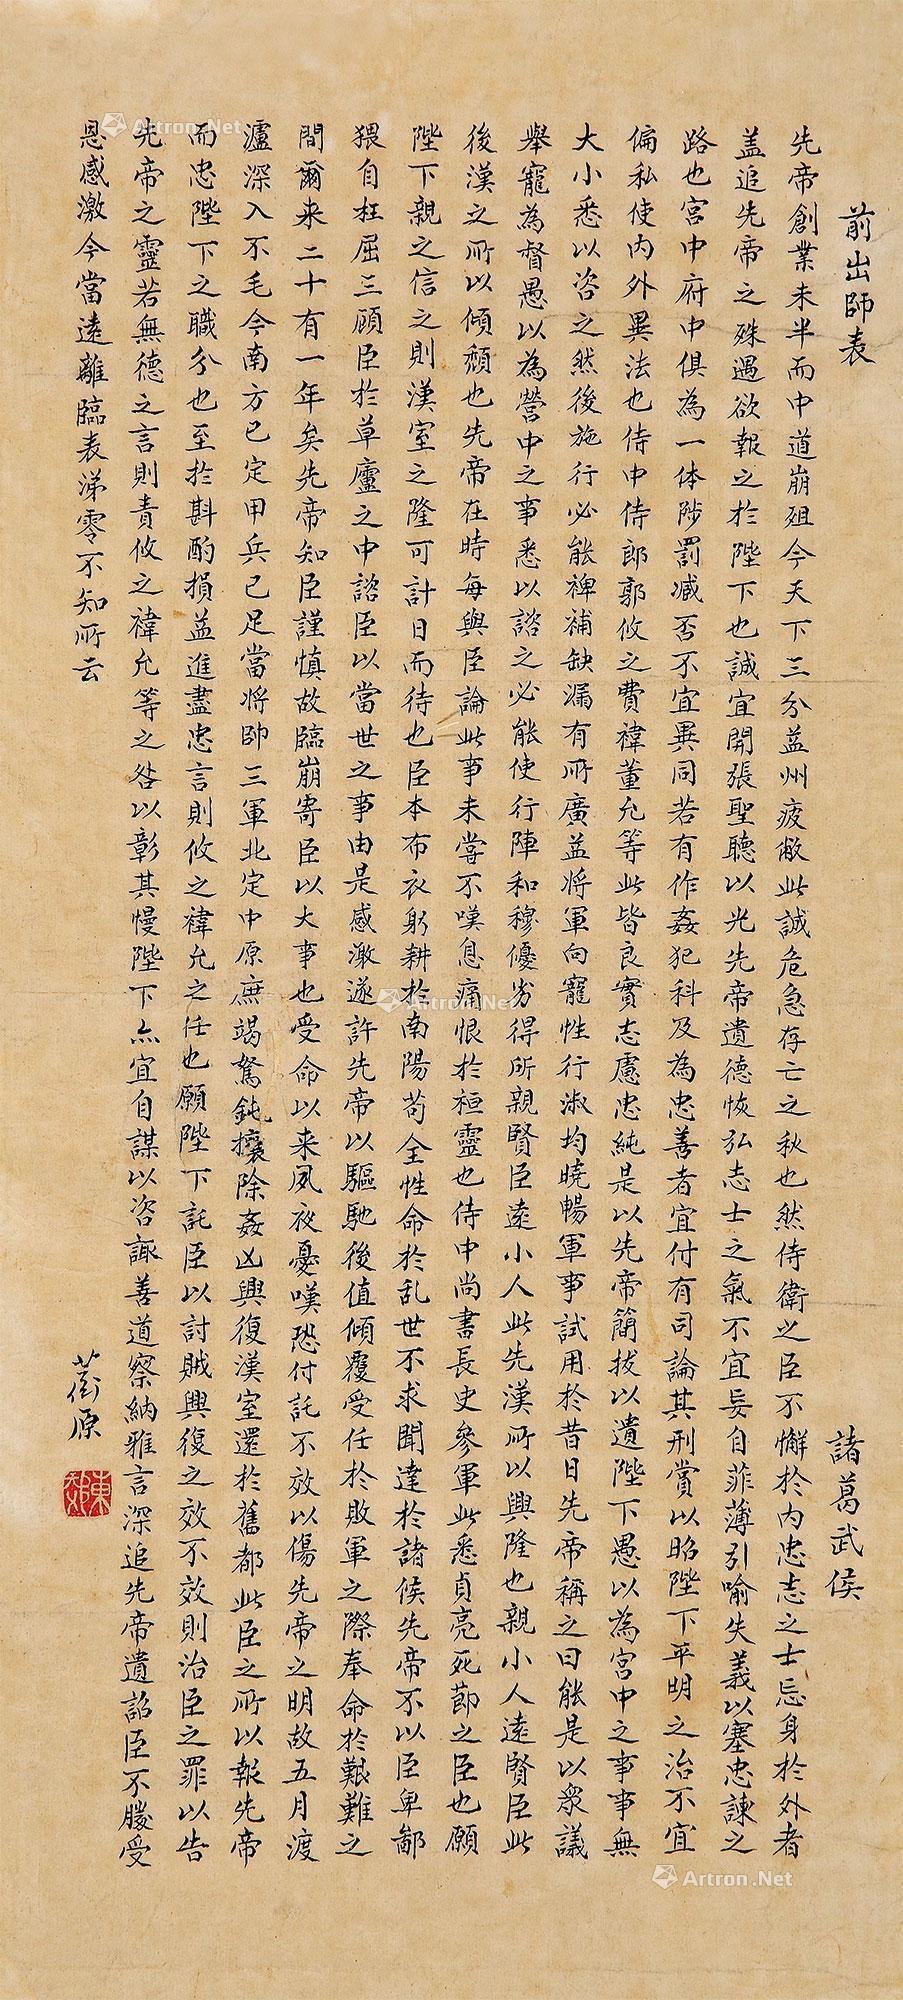 前出師表
諸葛武侯
先帝創業未半而中道崩殂今天下三分益州疲敝此誠危急存亡之秋也然侍衛之臣不懈於內忠志之士忘身於外者
盖追先帝之殊遇欲報之於陛下也誠宜開張聖聽以光先帝遺德恢弘志士之氣不宜妄自菲薄引喻失義以塞忠諫之
路也宮中府中俱為一体陟罰臧否不宜異同若有作姦犯科及為忠善者宜付有司論其刑賞以昭陛下平明之治不宜
偏私使內外異法也侍中侍郎郭攸之費禕董允等此皆良實志慮忠純是以先帝簡拔以遺陛下愚以為宮中之事事無
大小悉以咨之然後施行必能裨補缺漏有所廣益將軍向寵性行淑均曉暢軍事試用於昔日先帝稱之曰能是以眾議
舉寵為督愚以為營中之事悉以諮之必能使行陣和穆優劣得所親賢臣遠小人此先漢所以興隆也親小人遠賢臣此
後漢之所以傾頹也先帝在時每與臣論此事未嘗不嘆息痛恨於桓靈也侍中尚書長史參軍此悉貞亮死節之臣也願
陛下親之信之則漢室之隆可計日而待也臣本布衣躬耕於南陽苟全性命於乱世不求聞達於諸侯先帝不以臣卑鄙
猥自枉屈三顧臣於草廬之中諮臣以當世之事由是感激遂許先帝以驅馳後值傾覆受任於敗軍之際奉命於艱難之
間爾来二十有一年矣先帝知臣謹慎故臨崩寄臣以大事也受命以来夙夜憂嘆恐付託不效以傷先帝之明故五月渡
瀘深入不毛今南方已定甲兵已足當將帥三軍北定中原庶竭駑鈍攘除姦凶興復漢室還於舊都此臣之所以報先帝
而忠陛下之職分也至於斟酌損益進盡忠言則攸之禕允之任也願陛下託臣以討賊興復之效不效則治臣之罪以告
先帝之靈若無德之言則責攸之禕允等之咎以彰其慢陛下亦宜自謀以咨諏善道察納雅言深追先帝遺詔臣不勝受
恩感激今當遠離臨表涕零不知所云
蘅原
Artron.Net
Artron.Net
Artron.Net